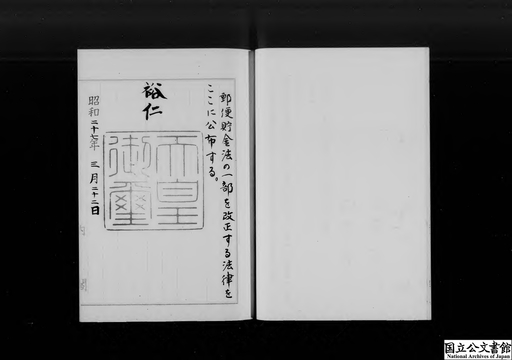 郵便貯金法の一部を改正する法律を
ここに公布する。
裕仁
天皇
御璽
昭和二十七年 三月二十二日
国立公文書館
National Archives of Japan